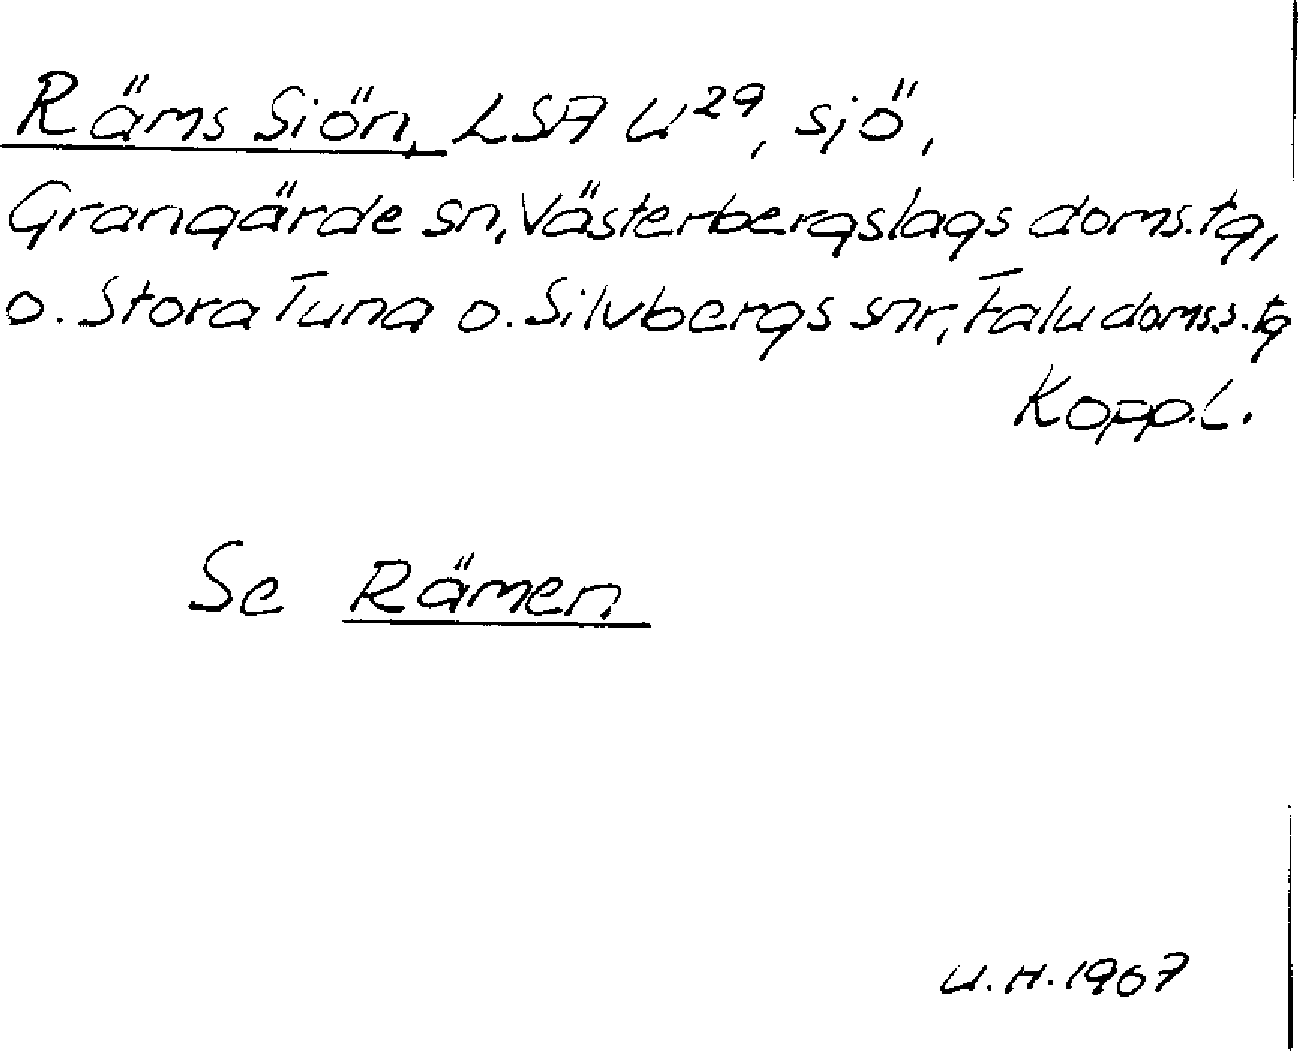 Räms Siön, LSA U²⁹, sjö,
Grangärde sn, Västerbergslags doms.tg,
o. Stora Tuna o. Silvbergs snr, Falu domss.tg
Kopp.l.
Se Rämen
U.H.1967